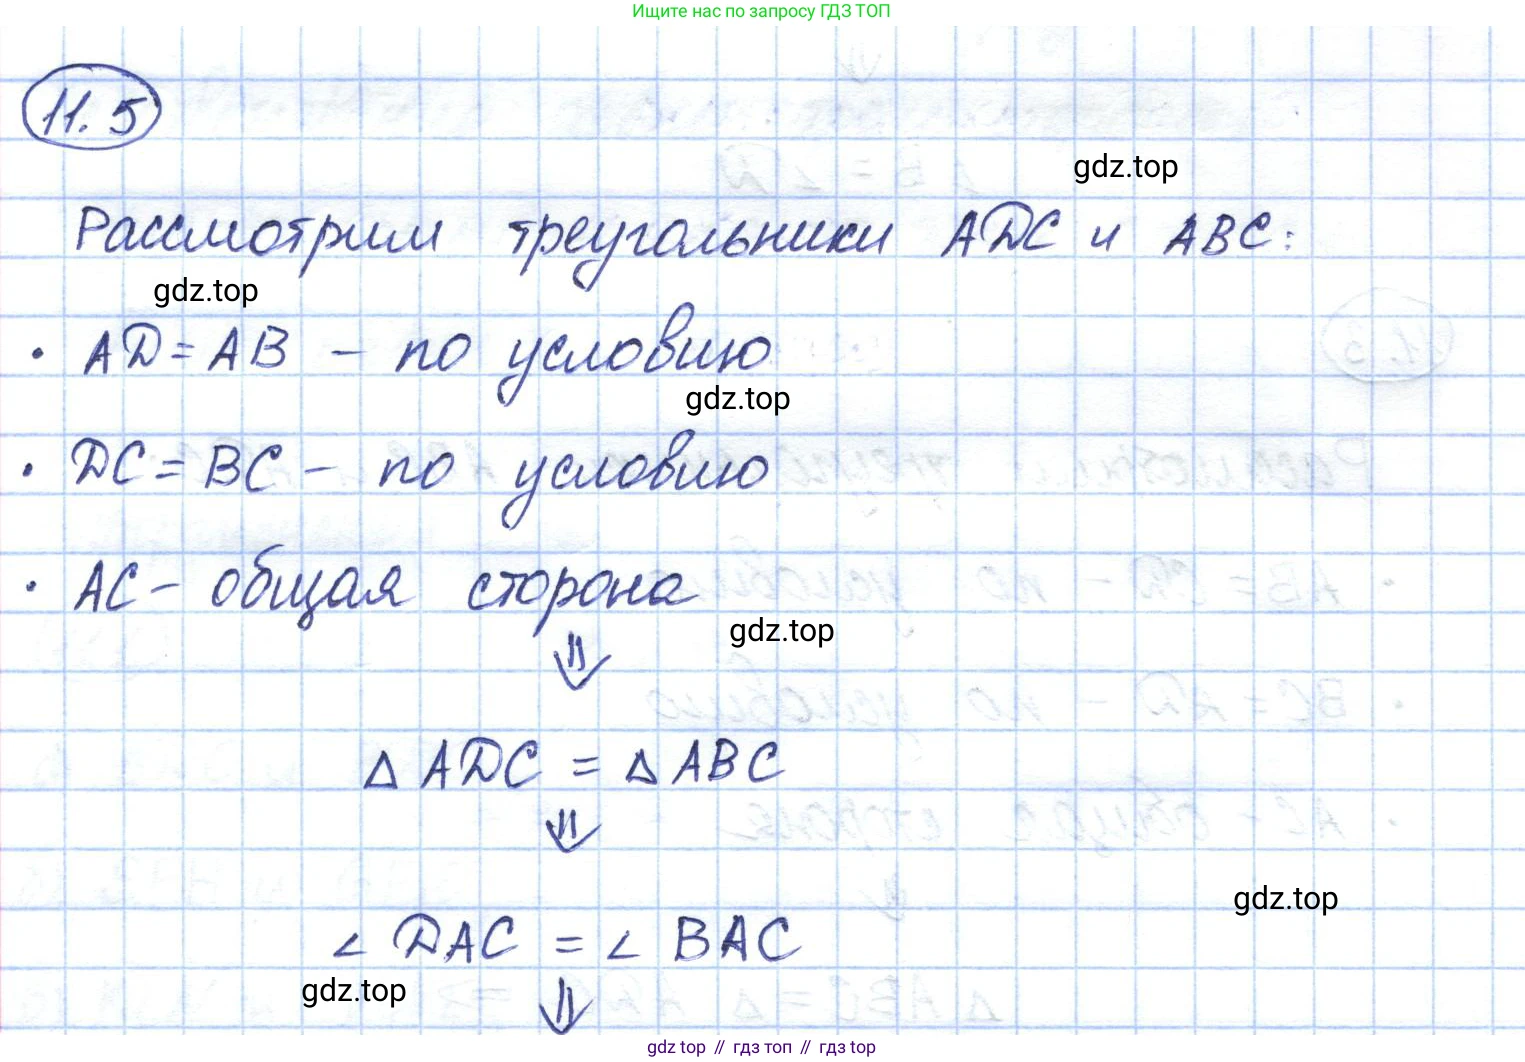 Ищите нас по запросу ГДЗ ТОП
11.5
gdz.top
Рассмотрим треугольники ADC и ABC:
gdz.top
· AD = AB – по условию
gdz.top
· DC = BC – по условию
· AC – общая сторона
gdz.top
⇓
△ ADC = △ ABC
⇓
gdz.top
∠ DAC = ∠ BAC
gdz.top
⇓
gdz top // гдз топ // гдз top